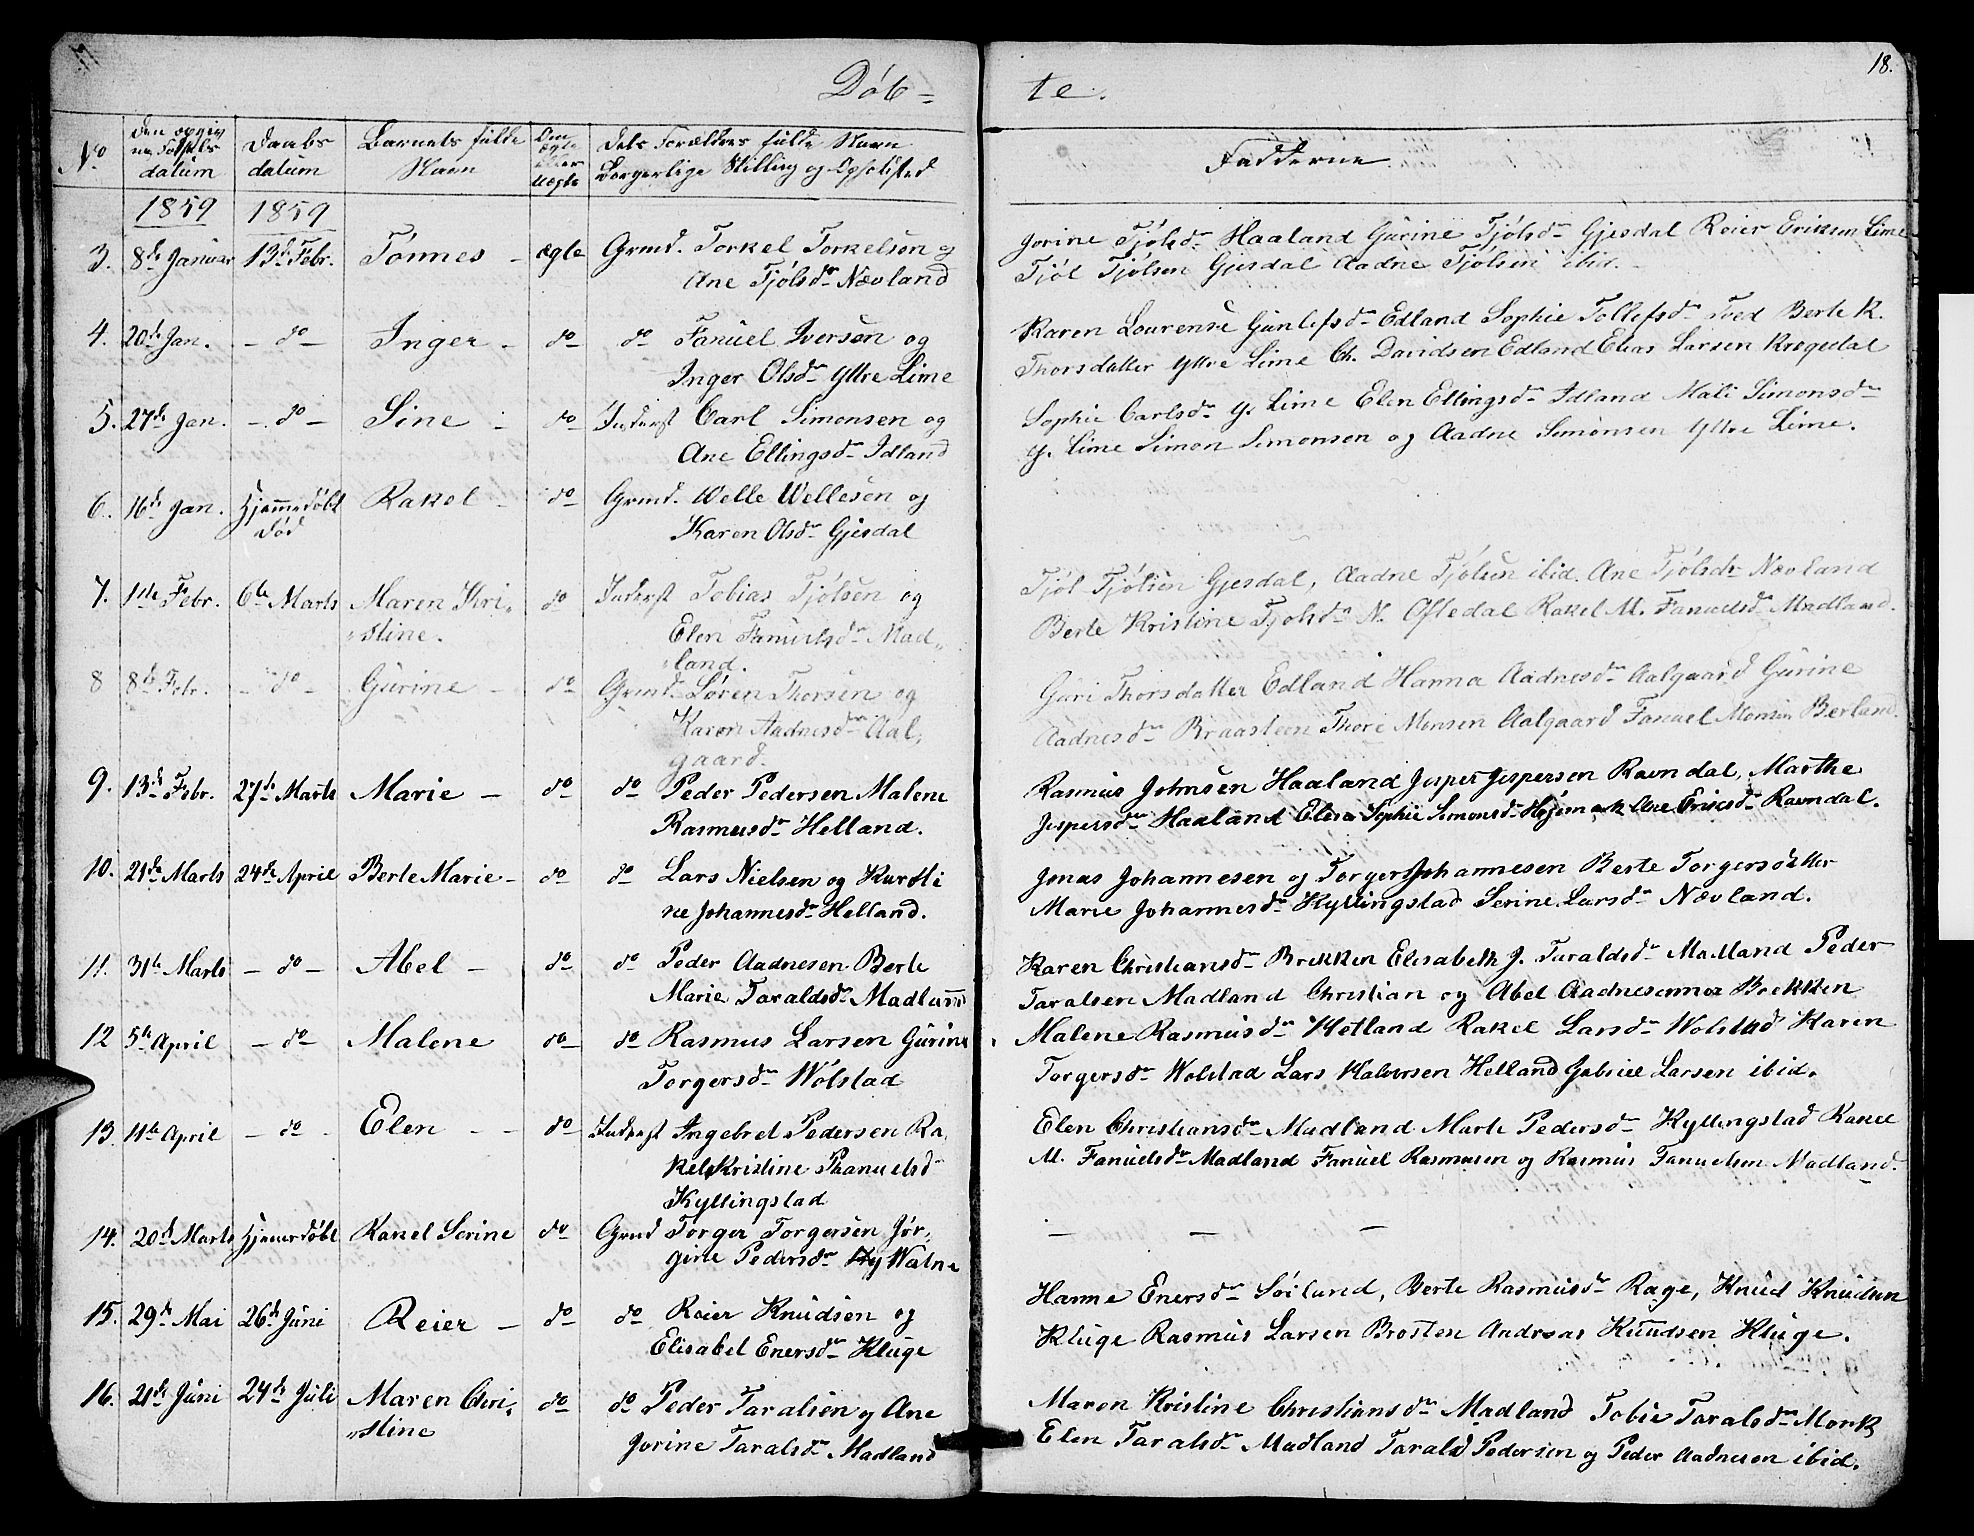 18.
Døb= te.
No den opgivne Fødselsdatum Daabsdatum Barnets fulde Navn Om ægte eller uægte dets Forældres fulde Navn Borgerlige Stilling og Opholdsted Fadderne
1859 1859
3. 8de Januar 13de Febr. Tønnes - ægte Grmd. Torkel Torkelsen og
Ane Tjølsdr Nævland
Jorine Tjølsdr Haaland Gurine Tjølsdr Gjesdal Reier Eriksen Lime
Tjøl Tjølsen Gjesdal Aadne Tjølsen ibid.
4. 20de Jan. - do - Inger - do do Fanuel Iversen og
Inger Olsdr Yttre Lime
Karen Lourense Gunlefsdr Edland Sophie Tollefsdr Foed Berte K.
Thorsdatter Yttre Lime Ch. Davidsen Edland Elias Larsen Kragedal
5. 27de Jan. - do - Sine - do Inderst Carl Simonsen og
Ane Ellingsdr Idland
Sophie Carlsdr Y. Lime Elen Ellingsdr Idland Mali Simonsdr
Y. Lime Simon Simonsen og Aadne Simonsen Yttre Lime.
6. 16de Jan. Hjemmedøbt Rakel - do Grmd. Welle Wellesen og
død Karen Olsdr Gjesdal
7. 1ste Febr. 6te Marts Maren Kri- do Inderst Tobias Tjølsen og
stine. Elen Fanuelsdr Mad-
land.
Tjøl Tjølsen Gjesdal, Aadne Tjølsen ibid. Ane Tjølsdr Nævland
Berte Kristine Tjølsdr N. Oftedal Rakel M. Fanuelsdr Madland.
8 8de Febr. - do - Gurine - do Grmd. Søren Thorsen og
Karen Aadnesdr Aal-
gaard.
Guri Thorsdatter Edland Hanna Aadnesdr Aalgaard Gurine
Aadnesdr Braasteen Thore Monsen Aalgaard Fanuel Monsen Berland.
9. 13de Febr. 27de Marts Marie - do do Peder Pedersen Malene
Rasmusdr Helland.
Rasmus Johnsen Haaland Jesper Jespersen Ravndal, Marthe
Jespersdr Haaland Elen Sophie Simonsdr Ane Ericsdr Ravndal.
10. 21de Marts 24de April Berte Marie - do do Lars Nielsen og Karsti
ne Johannesdr Helland.
Jonas Johannesen og Torger Johannesen Berte Torgersdatter
Marie Johannesdr Kyllingstad Serine Larsdr Nævland.
11. 31te Marts - do - Abel - do do Peder Aadnesen Berte
Marie Taraldsdr Madland
Karen Christiansdr Brekken Elisabeth J. Taraldsdr Madland Peder
Taralsen Madland Christian og Abel Aadnesenner Brekken
12 5te April - do - Malene do do Rasmus Larsen Gurine
Torgersdr Wølstad
Malene Rasmusdr Hetland Rakel Larsdr Wolstad Karen
Torgersdr Wolstad Lars Halversen Helland Gabriel Larsen ibid.
13. 11te April - do - Elen - - do Inderst Ingebret Pedersen Ra-
kel Kristine Phanuelsd
Kyllingstad
Elen Christiansdr Madland Marte Pedersdr Kyllingstad Rakel
M. Fanuelsdr Madland Fanuel Rasmusen og Rasmus Fanuelsen Madland.
14. 20de Marts Hjemmedøbt Rakel Serine do Grmd Torger Torgersen Jør-
gine Pedersdr Watne
— — —
15. 29de Mai 26de Juni Reier - do do Reier Knudsen og
Elisabet Enersdr Kluge
Hanne Enersdr Søiland, Berte Rasmusdr Rage, Knud Knudsen
Kluge Rasmus Larsen Brosten Andreas Knudsen Kluge.
16. 21de Juni 24de Juli Maren Chri- do do Peder Taralsen og Ane
stine Jorine Taralsdr Madland
Maren Kristine Christiansdr Madland Tobie Taralsdr Mork
Elen Taralsdr Madland Tarald Pedersen og Peder Aadnesen ibid.